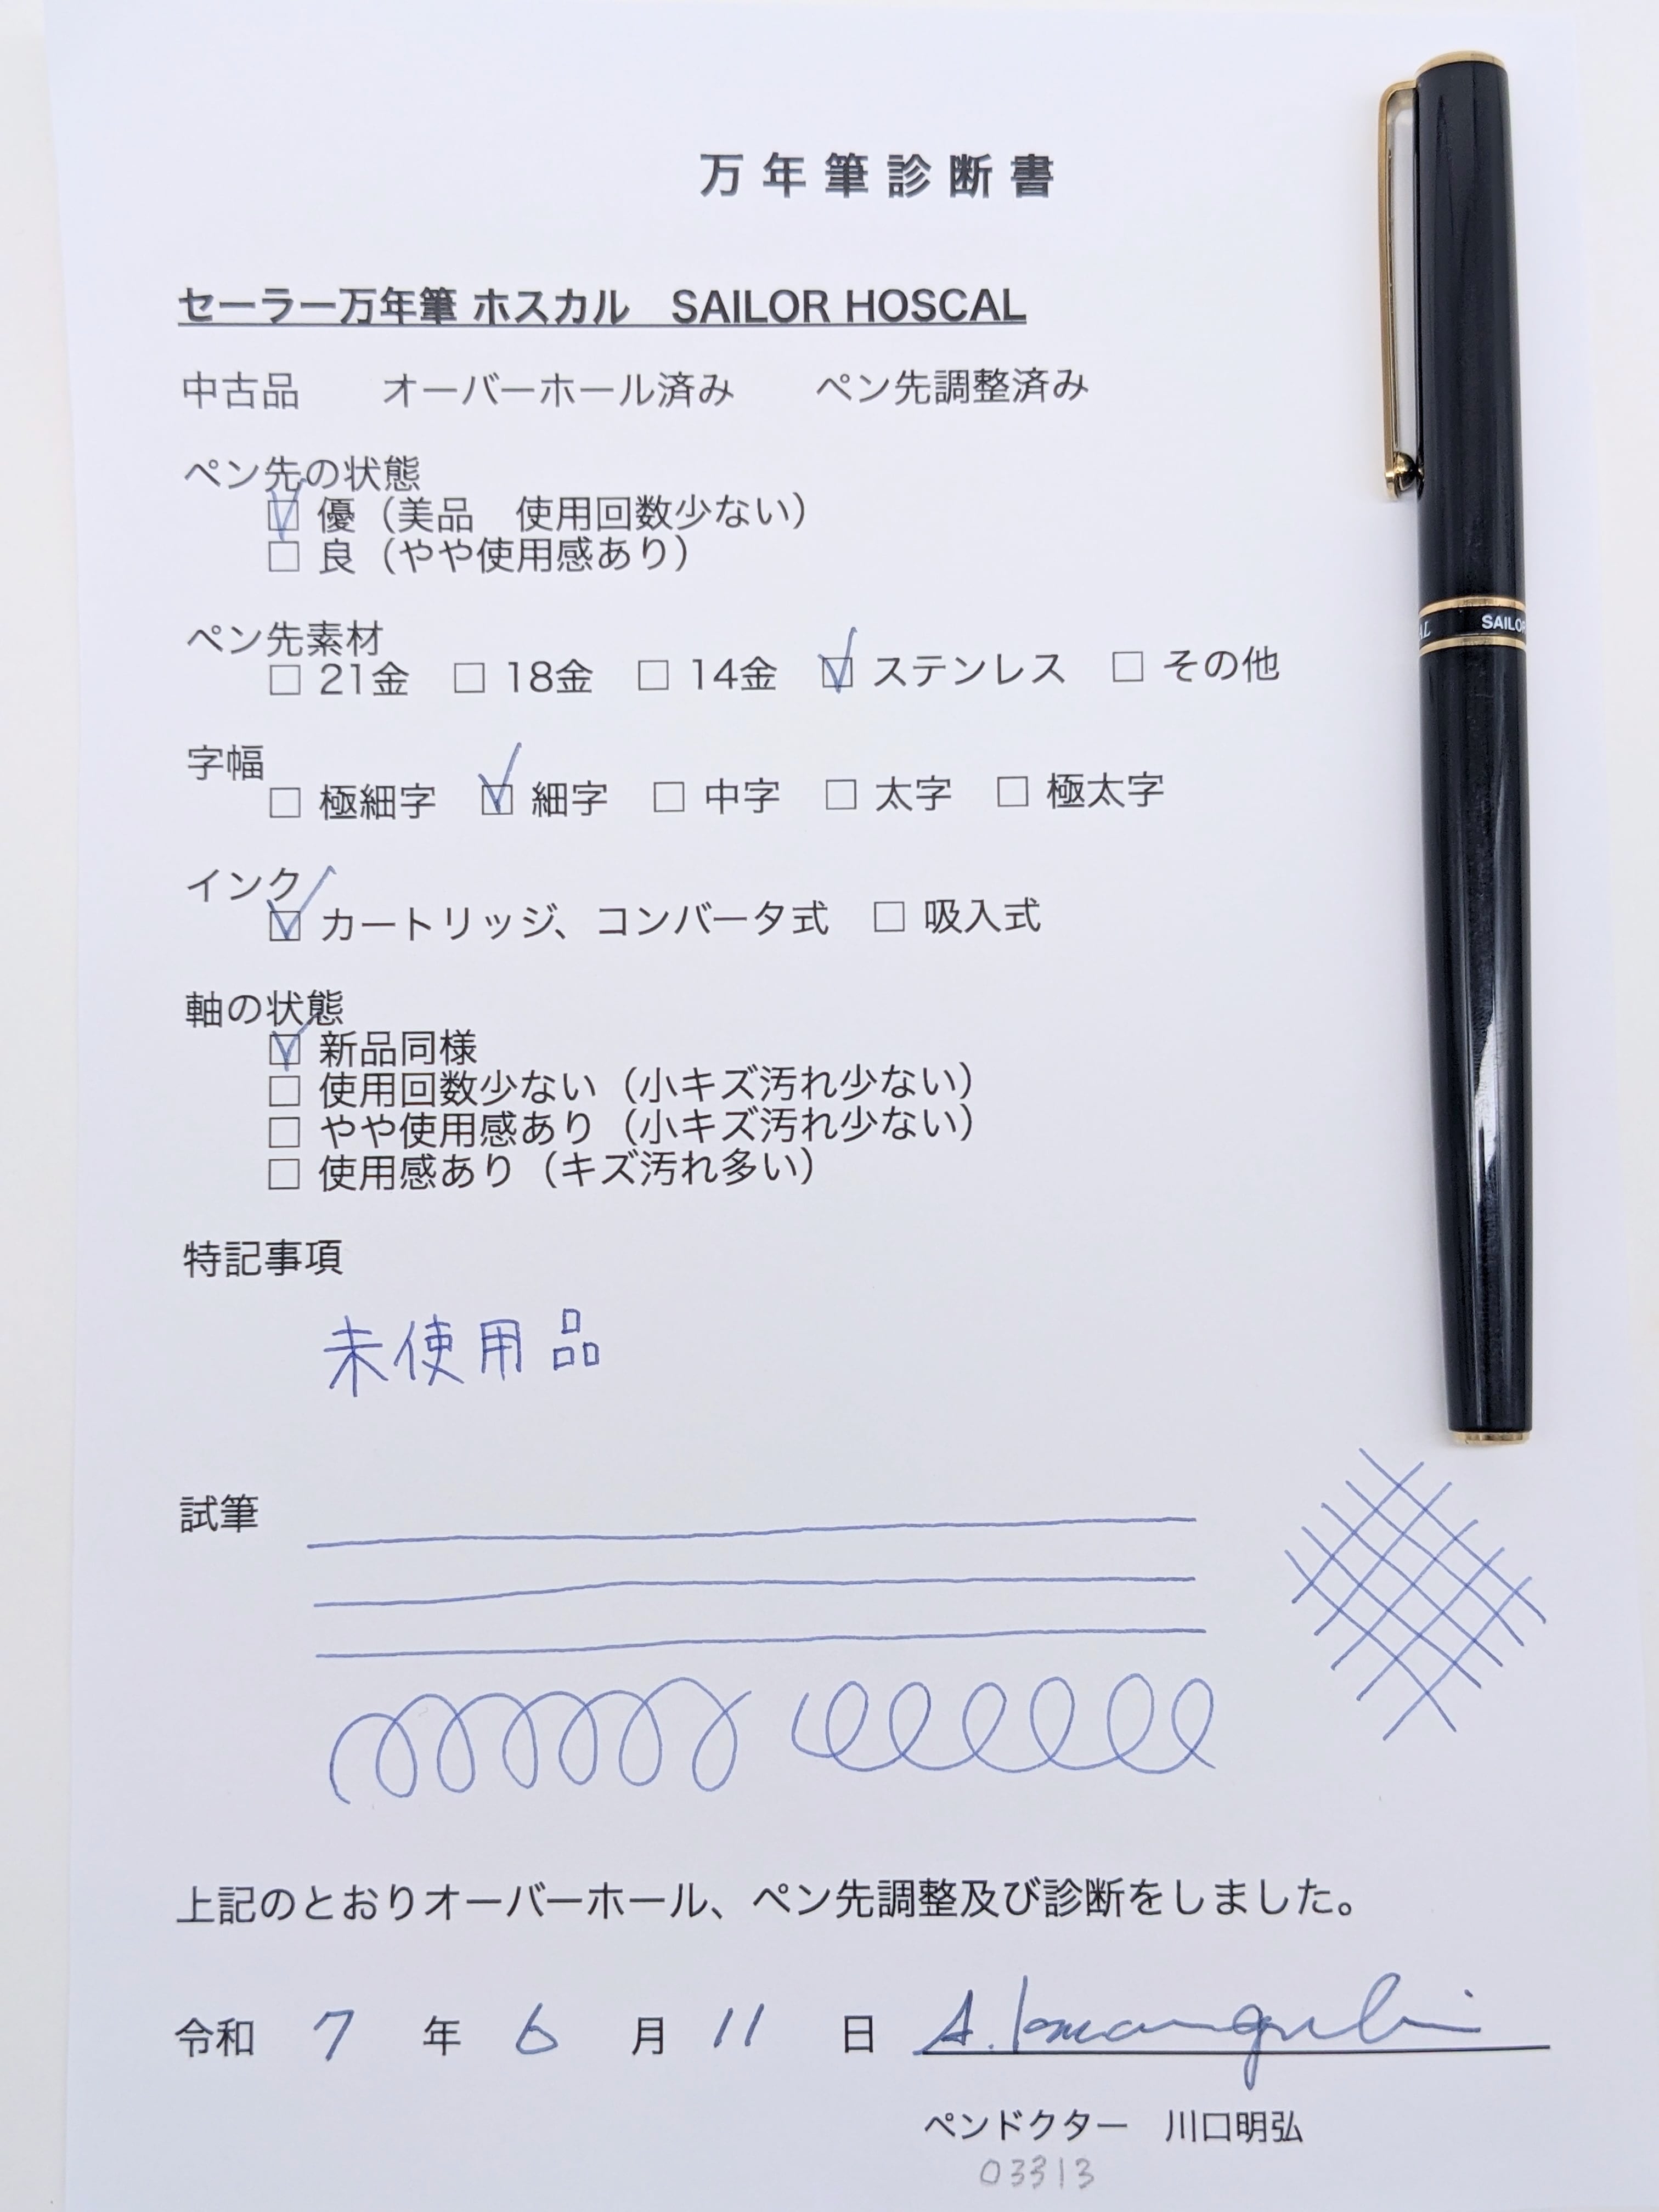 万年筆診断書
セーラー万年筆 ホスカル　SAILOR HOSCAL
中古品　　オーバーホール済み　　ペン先調整済み
ペン先の状態
☑ 優（美品　使用回数少ない）
☐ 良（やや使用感あり）
ペン先素材
☐ 21金　☐ 18金　☐ 14金　☑ ステンレス　☐ その他
字幅
☐ 極細字　☑ 細字　☐ 中字　☐ 太字　☐ 極太字
インク
☑ カートリッジ、コンバータ式　☐ 吸入式
軸の状態
☑ 新品同様
☐ 使用回数少ない（小キズ汚れ少ない）
☐ やや使用感あり（小キズ汚れ少ない）
☐ 使用感あり（キズ汚れ多い）
特記事項
未使用品
試筆
上記のとおりオーバーホール、ペン先調整及び診断をしました。
令和 7 年 6 月 11 日 A. Kawaguchi
ペンドクター　川口明弘
03313
SAILOR